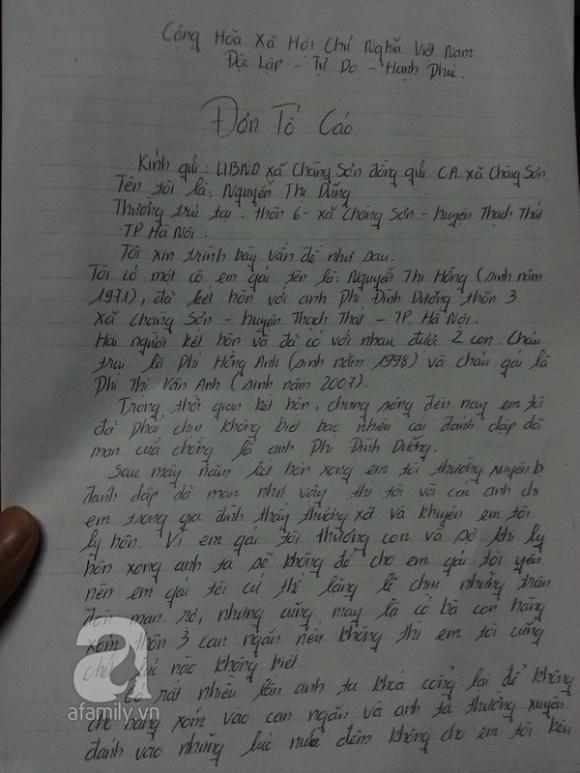 Cộng Hòa Xã Hội Chủ Nghĩa Việt Nam
Độc Lập - Tự Do - Hạnh Phúc.
Đơn Tố Cáo
Kính gửi : UBND xã Chàng Sơn đồng gửi CA xã Chàng Sơn
Tên tôi là : Nguyễn Thị Dũng
Thường trú tại : thôn 6 - xã Chàng Sơn - huyện Thạch Thất
TP. Hà Nội.
Tôi xin trình bày vấn đề như sau.
Tôi có một cô em gái tên là: Nguyễn Thị Hồng (sinh năm
1971), đã kết hôn với anh Phí Đình Dưỡng thôn 3
xã Chàng Sơn - huyện Thạch Thất - TP. Hà Nội.
Hai người kết hôn và đã có với nhau được 2 con. Cháu
trai là Phí Hồng Anh (sinh năm 1998) và cháu gái là
Phí Thị Vân Anh (sinh năm 2007).
Trong thời gian kết hôn, chung sống đến nay em tôi
đã phải chịu không biết bao nhiêu cái đánh đập dã
man của chồng là anh Phí Đình Dưỡng.
Sau mấy năm kết hôn xong em tôi thường xuyên bị
đánh đập dã man như vậy thì tôi và các anh chị
em trong gia đình thấy thương xót và khuyên em tôi
ly hôn. Vì em gái tôi thương con và sợ khi ly
hôn xong anh ta sẽ không để cho em gái tôi yên
nên em gái tôi cứ thế lặng lẽ chịu những trận
đòn man rợ, nhưng cũng may là có bà con hàng
xóm thôn 3 can ngăn nếu không thì em tôi cũng
chết lúc nào không biết.
rất nhiều lần anh ta khoá cổng lại để không
cho hàng xóm vào can ngăn và anh ta thường xuyên
đánh vào những lúc nửa đêm không cho em tôi kêu
afamily.vn